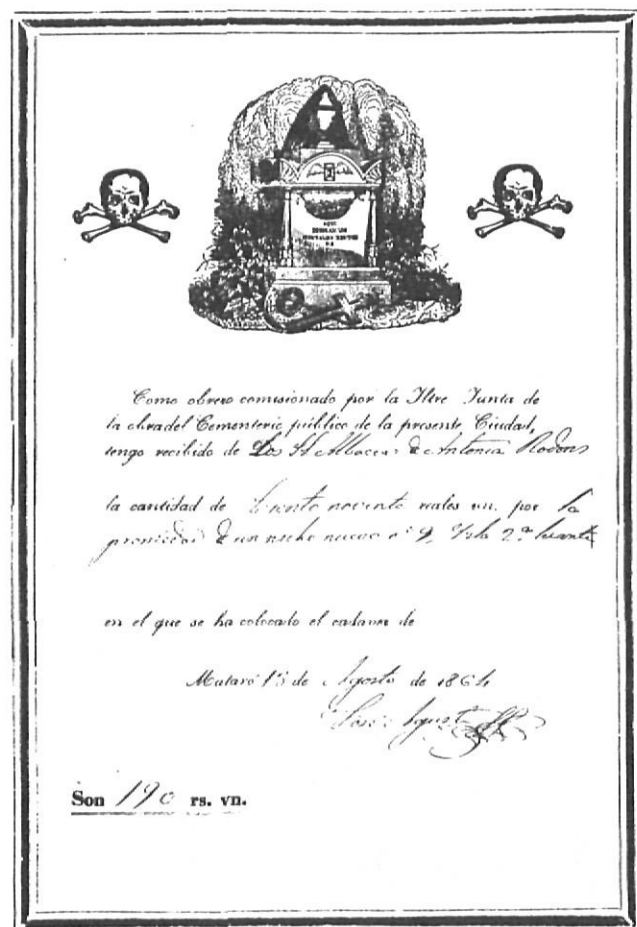 Como obrero comisionado por la Iltre Junta de
la obra del Cementerio público de la presente Ciudad,
tengo recibido de Los Sr Albaceas de Antonia Rodons
la cantidad de Ciento noventa reales vn. por la
propiedad de un nicho nuevo nº 9, Isla 2ª
en el que se ha colocado el cadaver de
Mataró 13 de Agosto de 1864
José Agust
Son 190 rs. vn.